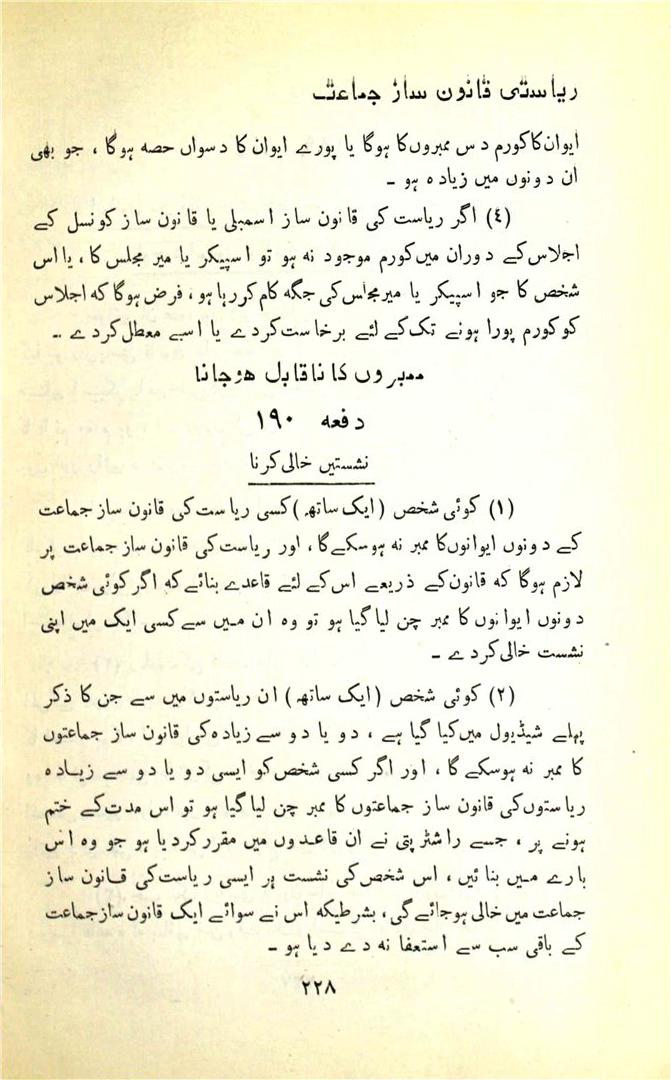 ریاستی قانون ساز جماعت
ایوان کا کورم دس ممبروں کا ہوگا یا پورے ایوان کا دسواں حصہ ہوگا ، جو بھی
ان دونوں میں زیادہ ہو ۔
(٤) اگر ریاست کی قانون ساز اسمبلی یا قانون ساز کونسل کے
اجلاس کے دوران میں کورم موجود نہ ہو تو اسپیکر یا میر مجلس کا ، یا اس
شخص کا جو اسپیکر یا میر مجلس کی جگہ کام کر رہا ہو ، فرض ہوگا کہ اجلاس
کو کورم پورا ہونے تک کے لئے برخاست کردے یا اسے معطل کردے ۔
ممبروں کا ناقابل ہوجانا
دفعہ ١٩٠
نشستیں خالی کرنا
(١) کوئی شخص (ایک ساتھ) کسی ریاست کی قانون ساز جماعت
کے دونوں ایوانوں کا ممبر نہ ہوسکے گا ، اور ریاست کی قانون ساز جماعت پر
لازم ہوگا کہ قانون کے ذریعے اس کے لئے قاعدے بنائے کہ اگر کوئی شخص
دونوں ایوانوں کا ممبر چن لیا گیا ہو تو وہ ان میں سے کسی ایک میں اپنی
نشست خالی کردے ۔
(٢) کوئی شخص (ایک ساتھ) ان ریاستوں میں سے جن کا ذکر
پہلے شیڈیول میں کیا گیا ہے ، دو یا دو سے زیادہ کی قانون ساز جماعتوں
کا ممبر نہ ہوسکے گا ، اور اگر کسی شخص کو ایسی دو یا دو سے زیادہ
ریاستوں کی قانون ساز جماعتوں کا ممبر چن لیا گیا ہو تو اس مدت کے ختم
ہونے پر ، جسے راشٹرپتی نے ان قاعدوں میں مقرر کردیا ہو جو وہ اس
بارے میں بنائیں ، اس شخص کی نشست ہر ایسی ریاست کی قانون ساز
جماعت میں خالی ہوجائے گی ، بشرطیکہ اس نے سوائے ایک قانون ساز جماعت
کے باقی سب سے استعفا نہ دے دیا ہو ۔
٢٢٨